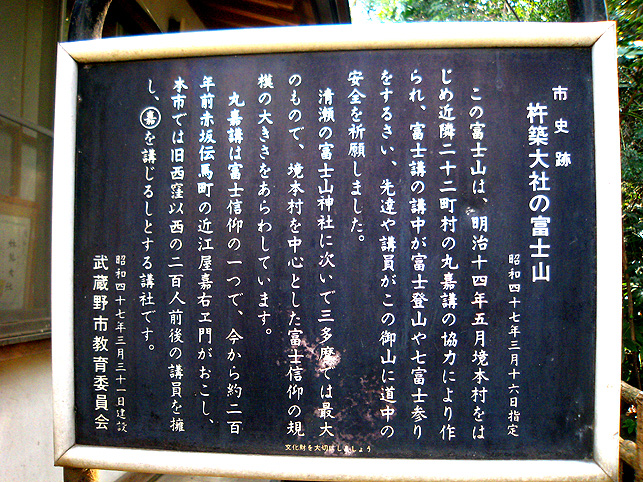 市史跡
杵築大社の富士山
昭和四十七年三月十六日指定
この富士山は、明治十四年五月境本村をは
じめ近隣二十二町村の丸嘉講の協力により作
られ、富士講の講中が富士登山や七富士参り
をするさい、先達や講員がこの御山に道中の
安全を祈願しました。
清瀬の富士山神社に次いで三多摩では最大
のもので、境本村を中心とした富士信仰の規
模の大きさをあらわしています。
丸嘉講は富士信仰の一つで、今から約二百
年前赤坂伝馬町の近江屋嘉右ヱ門がおこし、
本市では旧西窪以西の二百人前後の講員を擁
し、㊂を講じるしとする講社です。
昭和四十七年三月三十一日建設
武蔵野市教育委員会
文化財を大切にしましょう